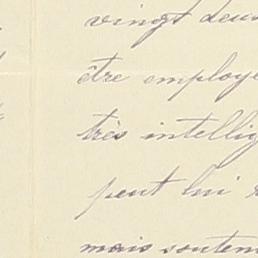 vingt deux
être employé
très intellig
peut lui
mais souten